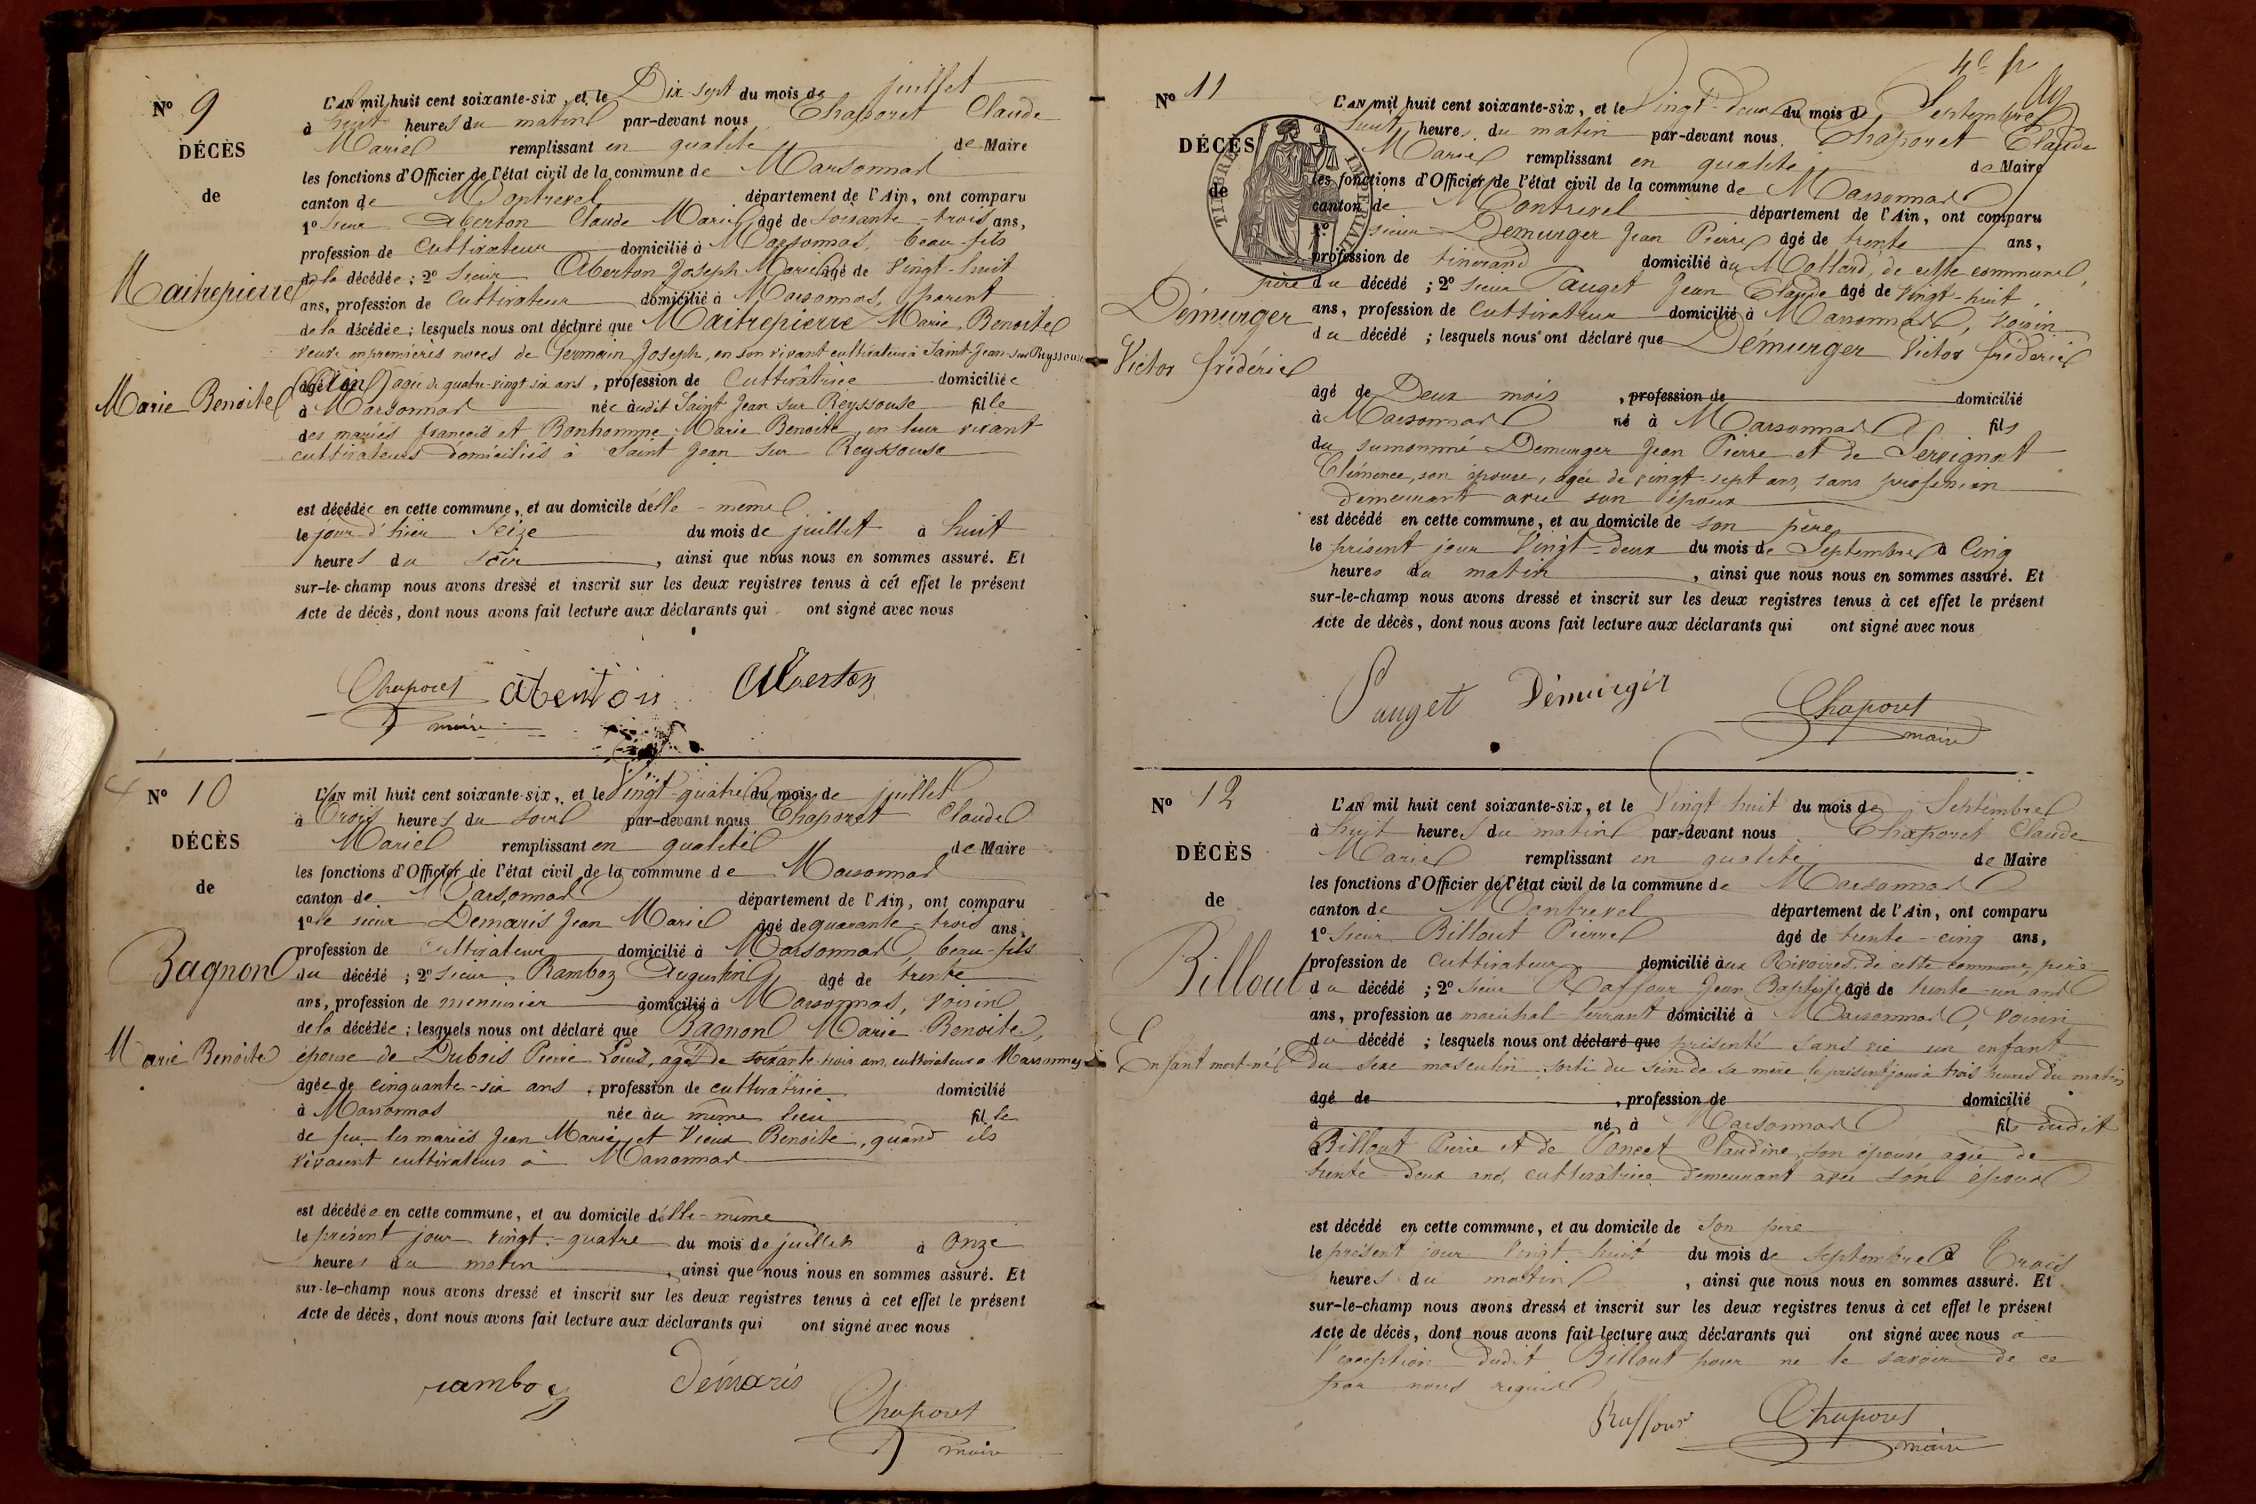 N° 9
DÉCÈS
de
Maitrepierre
Marie Benoite
L'AN mil huit cent soixante-six, et le Dix sept du mois de juillet
à huit heures du matin par-devant nous Chaporet Claude
Marie remplissant en qualité de Maire
les fonctions d'Officier de l'état civil de la commune de Marsonnas
canton de Montrevel département de l'Ain, ont comparu
1° sieur Aberton Claude Marie âgé de soixante-trois ans,
profession de Cultivateur domicilié à Marsonnas, beau-fils
de la décédée; 2° sieur Aberton Joseph Marie âgé de vingt-huit
ans, profession de Cultivateur domicilié à Marsonnas, parent
de la décédée; lesquels nous ont déclaré que Maitrepierre Marie Benoite
veuve en premières noces de Germain Joseph, en son vivant cultivateur à Saint-Jean-sur Reyssouze
(Ain) âgée de quatre-vingt six ans, profession de Cultivatrice domiciliée
à Marsonnas née audit Saint Jean sur Reyssouse fille
des mariés françois et Bonhomme Marie Benoite, en leur vivant
cultivateurs domiciliés à Saint Jean sur Reyssouse
est décédée en cette commune, et au domicile d'elle-même
le jour d'hier seize du mois de juillet à huit
heures du soir, ainsi que nous nous en sommes assuré. Et
sur-le-champ nous avons dressé et inscrit sur les deux registres tenus à cet effet le présent
Acte de décès, dont nous avons fait lecture aux déclarants qui ont signé avec nous
Chaporet Abertoir Aberton
maire
N° 10
DÉCÈS
de
Bagnon
Marie Benoite
L'AN mil huit cent soixante-six, et le Vingt-quatre du mois de juillet
à Trois heures du soir par-devant nous Chaporet Claude
Marie remplissant en qualité de Maire
les fonctions d'Officier de l'état civil de la commune de Marsonnas
canton de Marsonnas département de l'Ain, ont comparu
1° le sieur Demaris Jean Marie âgé de quarante-trois ans,
profession de cultivateur domicilié à Marsonnas, beau-fils
du décédé; 2° sieur Ramboz Augustin âgé de trente
ans, profession de menuisier domicilié à Marsonnas, voisin
de la décédée; lesquels nous ont déclaré que Bagnon Marie Benoite,
épouse de Dubois Pierre Louis, âgé de soixante-trois ans, cultivateur à Marsonnas
âgée de cinquante-six ans, profession de cultivatrice domicilié
à Marsonnas née au même lieu fille
de feu les mariés Jean Marie et Vieux Benoite, quand ils
vivaient cultivateurs à Marsonnas
est décédée en cette commune, et au domicile d'elle-même
le présent jour vingt-quatre du mois de juillet à onze
heures du matin, ainsi que nous nous en sommes assuré. Et
sur-le-champ nous avons dressé et inscrit sur les deux registres tenus à cet effet le présent
Acte de décès, dont nous avons fait lecture aux déclarants qui ont signé avec nous
ramboz Démaris
Chaporet
maire
4e
N° 11
DÉCÈS
de
TIMBRE IMPÉRIAL
Démurger
Victor frédéric
L'AN mil huit cent soixante-six, et le Vingt-deux du mois de Septembre
à huit heures du matin par-devant nous Chaporet Claude
Marie remplissant en qualité de Maire
les fonctions d'Officier de l'état civil de la commune de Marsonnas
canton de Montrevel département de l'Ain, ont comparu
1° sieur Demurger Jean Pierre âgé de trente ans,
profession de tisserand domicilié au Mollard, de cette commune,
père du décédé; 2° sieur Pauget Jean Claude âgé de vingt-huit
ans, profession de Cultivateur domicilié à Marsonnas, voisin
du décédé; lesquels nous ont déclaré que Démurger Victor frédéric
âgé de Deux mois, profession de domicilié
à Marsonnas né à Marsonnas fils
du surnommé Demurger Jean Pierre et de Servignat
Clémence, son épouse, âgée de vingt-sept ans, sans profession
demeurant avec son époux
est décédé en cette commune, et au domicile de son père
le présent jour Vingt-deux du mois de Septembre à Cinq
heures du matin, ainsi que nous nous en sommes assuré. Et
sur-le-champ nous avons dressé et inscrit sur les deux registres tenus à cet effet le présent
Acte de décès, dont nous avons fait lecture aux déclarants qui ont signé avec nous
Pauget Démurger Chaporet
maire
N° 12
DÉCÈS
de
Billout
Enfant mort-né
L'AN mil huit cent soixante-six, et le Vingt huit du mois de Septembre
à huit heures du matin par-devant nous Chaporet Claude
Marie remplissant en qualité de Maire
les fonctions d'Officier de l'état civil de la commune de Marsonnas
canton de Montrevel département de l'Ain, ont comparu
1° sieur Billout Pierre âgé de trente-cinq ans,
profession de Cultivateur domicilié aux Rivoires, de cette commune, père
du décédé; 2° sieur Raffour Jean Baptiste âgé de trente-un ans
ans, profession de maréchal-ferrant domicilié à Marsonnas, voisin
du décédé; lesquels nous ont déclaré que présenté sans vie un enfant
du sexe masculin sorti du sein de sa mère le présent jour à trois heures du matin
âgé de, profession de domicilié
à né à Marsonnas fils dudit
Billout Pierre et de Poncet Claudine, son épouse âgée de
trente deux ans, cultivatrice demeurant avec son époux
est décédé en cette commune, et au domicile de son père
le présent jour Vingt-huit du mois de septembre à Trois
heures du matin, ainsi que nous nous en sommes assuré. Et
sur-le-champ nous avons dressé et inscrit sur les deux registres tenus à cet effet le présent
Acte de décès, dont nous avons fait lecture aux déclarants qui ont signé avec nous à
l'exception dudit Billout pour ne le savoir de ce
par nous requis
Raffour Chaporet
maire